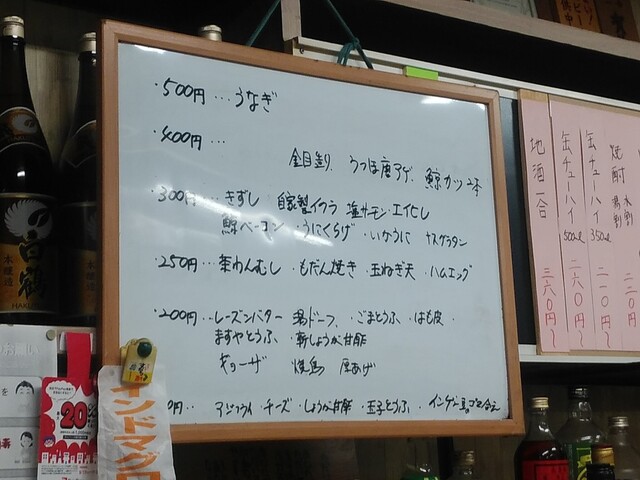 ・500円…うなぎ
・400円…
金目造り うつぼ唐アゲ 鯨カツ2本
・300円…きずし 自家製イクラ 塩サーモン・エイヒレ
鯨ベーコン ・うにくらげ ・いかうに ナスグラタン
・250円…茶わんむし ・もだん焼き ・玉ねぎ天 ・ハムエッグ
・200円…レーズンバター 湯ドーフ ・ごまとうふ ・はも皮
ますやとうふ ・新しょうが甘酢
ギョーザ 焼鳥 厚あげ
円… チーズ ・しょうが甘酢 ・玉子とうふ ・インゲン
地酒一合 三六〇円〜
缶チューハイ 500ml 二六〇円〜
缶チューハイ 350ml 二一〇円〜
焼酎 水割 湯割 二二〇
白鶴
本醸造
20
インドマグロ